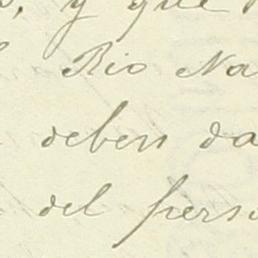 y que
Rio Na
deben da
del pers